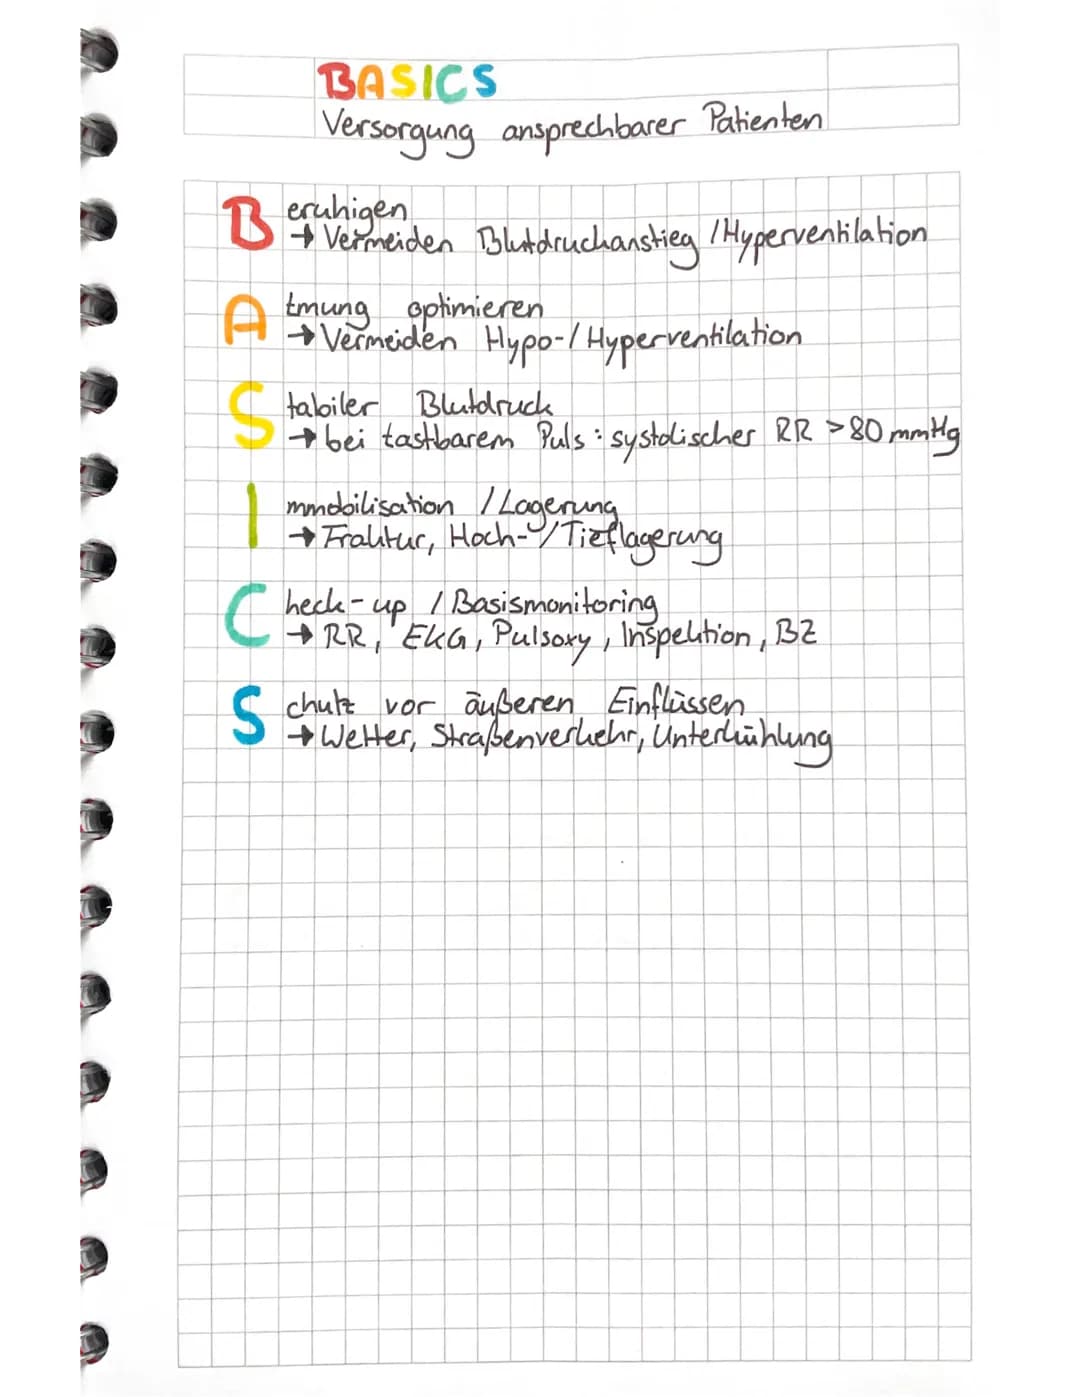 BASICS
Versorgung ansprechbarer Patienten
Beruhigen
→ Vermeiden Blutdruckanstieg / Hyperventilation
Atmung optimieren
→ Vermeiden Hypo-/Hyperventilation
Stabiler Blutdruck
→ bei tastbarem Puls: systolischer RR >80 mmHg
Immobilisation / Lagerung
→ Fraktur, Hoch-/Tieflagerung
Check-up / Basismonitoring
→ RR, EKG, Pulsoxy, Inspektion, BZ
Schutz vor äußeren Einflüssen
→ Wetter, Straßenverkehr, Unterkühlung